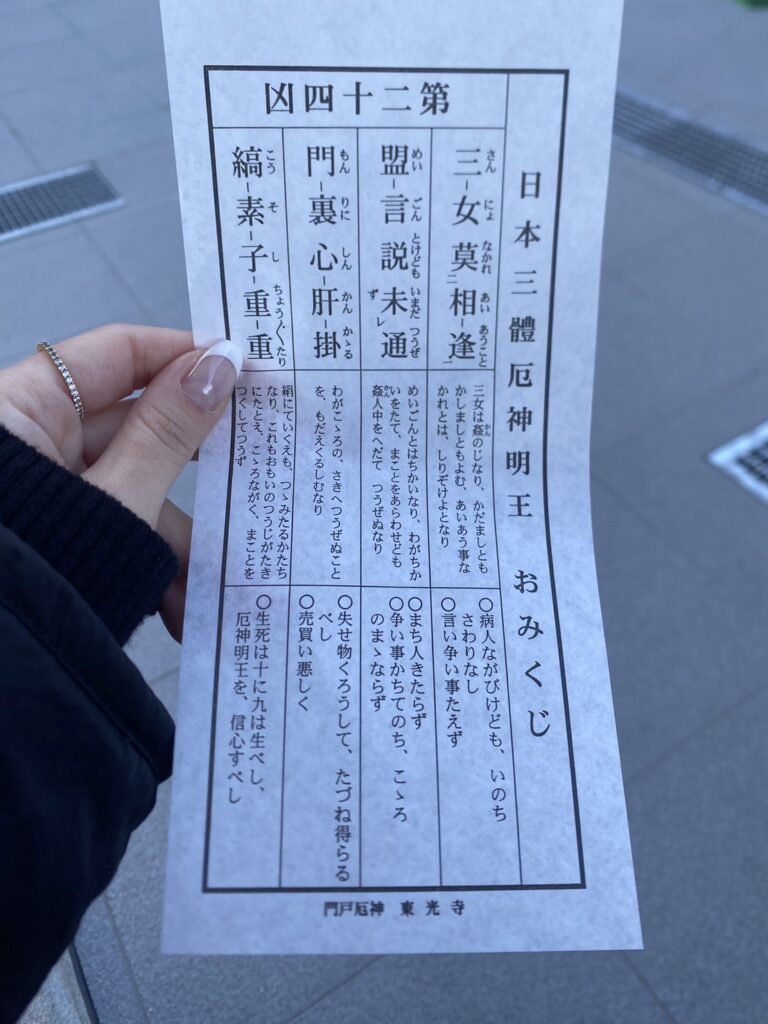 日本三體厄神明王 おみくじ
第二十四凶
さん にょ なかれ あい あうこと
三－女莫二相－逢一
めい ごん とけども いまだ つうぜ
盟－言説未レ通
ず
もん りに しん かん かゝる
門－裏心－肝－掛
こう そ し ちょう〳〵たり
縞－素－子－重－重
三女は姦のじなり、かだましとも
かん
かしましともよむ、あいあう事な
かれとは、しりぞけよとなり
めいごんとはちかいなり、わがちか
いをたて、まことをあらわせども
姦人中をへだて つうぜぬなり
かん
わがこゝろの、さきへつうぜぬこと
を、もだえくるしむなり
絹にていくえも、つゝみたるかたち
なり、これもおもいのつうじがたき
にたとえ、こゝろながく、まことを
つくしてつうず
〇病人ながびけども、いのち
さわりなし
〇言い争い事たえず
〇まち人きたらず
〇争い事かちてのち、こゝろ
のまゝならず
〇失せ物くろうして、たづね得らる
べし
〇売買い悪しく
〇生死は十に九は生べし、
厄神明王を、信心すべし
門戸厄神 東光寺